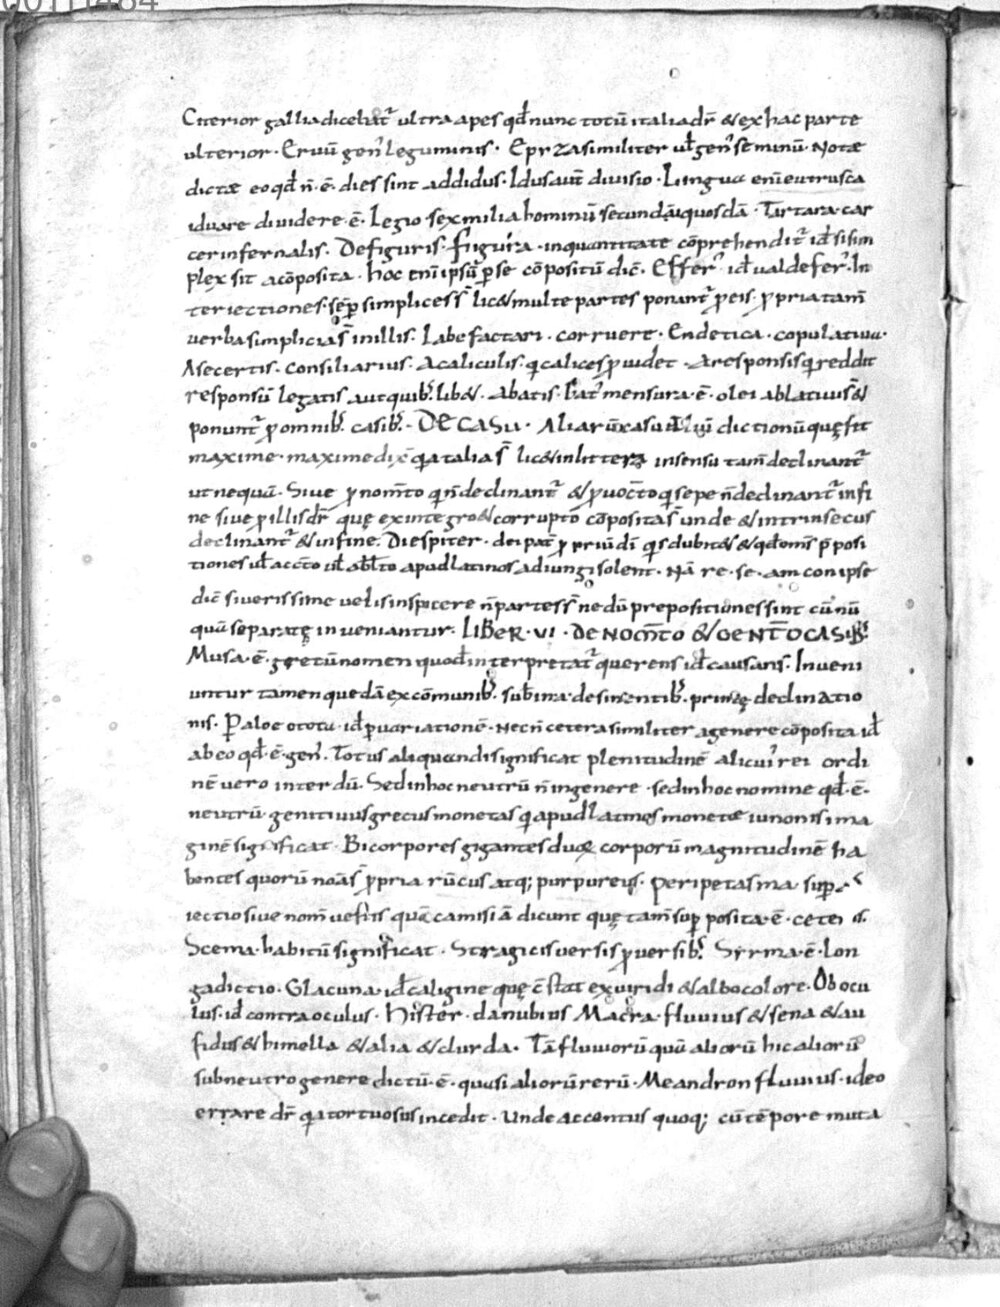 Citerior gallia dicebat᷑ ultra apes qd̄ nunc totū italia dr̄ & ex hac parte
ulterior · Eruū gen᷒ leguminis · similiter ul̄ gen᷒ seminū · Notæ
dictæ eo qd̄ n̄ · ē · dies sint addidus · Idus aut̄ divisio · Lingua eni etrusca
iduare dividere · ē · Legio sex milia hominū secundā quosdā · Tartara car
cer infernalis · De figuris · figura · in quantitate cōprehendit᷑ id̄ si sim
plex sit a cōposita · hoc eni ipsū per se cōpositū dic̄ · Effer᷒ id̄ valde fer᷒ · In
teriectiones · sēp simplices s̄ lic& multe partes ponunt᷑ p eis · ppria tam̄
verba simplicia s̄ in illis · Labefactari · corruere · Endetica · copulativa ·
A secertis · consiliarius · A caliculis · qi calices pvidet · A responsis qi reddit
responsū legatis aut quib᷒ lib& · Abatis · mensura · ē · olei ablativus &
ponunt᷑ p omnib᷒ casib᷒ · DE CASU · Aliarū casu dictionū quę fit
maxime · maxime dix̄ qa talia s̄ lic& in littera in sensu tam̄ declinant᷑
ut nequā · Sive p nom̄to qi n̄ declinant᷑ & p voc̄to qi sepe n̄ declinant᷑ in fi
ne sive p illis dr̄ quę ex integro & corrupto cōposita s̄ unde & intrinsecus
declinant᷑ & in fine · Diespiter · dei pat̄ qi s dubit& & qd̄ om̄s pposi
tiones ul̄ acc̄to ul̄ abl̄to apud latinos adiungi solent · Nā re · se · am con ipse
dic̄ si verissime velis inspicere n̄ partes s̄ nedū prepositiones sint cū nū
quā separatę inveniantur · LIBER · VI · DE NOM̄TO & GENT̄O CASIB᷒
Musa · ē · grecū nomen quod interpretat᷑ querens id̄ causans · Inveni
untur tamen quedā ex cōmunib᷒ · sub īma desinentib᷒ · primę declinatio
nis · Paloe ototu · id̄ p variationē · Nec n̄ cetera similiter a genere cōposita id̄
ab eo qd̄ · ē · gen᷒ · Totus aliquando significat plenitudinē alicui᷒ rei ordi
nē vero interdū · Sed in hoc neutrū n̄ in genere · sed in hoc nomine qd̄ · ē ·
neutrū · genitivus grecus monetas qi apud latinos monetæ iunonis ima
ginē significat · Bicorpores gigantes duoꝝ corporū magnitudinē ha
bentes quorū noīa s̄ ppria rūcus atq; purpureus · Peripetasma · sup
iectio sive nom̄ vestis quā camisiā dicunt quę tam̄ sup posita · ē ·
Scema · habitū significat · S tragicis versis p versib᷒ · Syrma · ē · lon
ga dictio · Glacuna · id̄ caligine quę c̄stat ex viridi & albo colore · Ob ocu
lus · id̄ contra oculus · Hister · danubius Macra · fluvius & sena & au
fidus & himella & alia & clurda · Tā fluviorū quā aliorū hic aliorū
sub neutro genere dictū · ē · quasi aliorū rerū · Meandron fluvius · ideo
errare dr̄ qa tortuosus incedit · Unde accentus quoq; cū tēpore muta